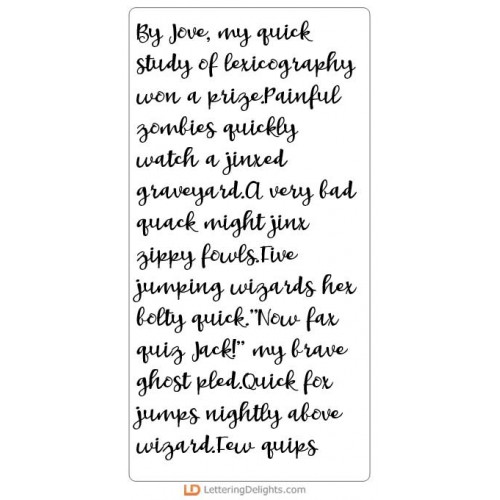 By Jove, my quick
study of lexicography
won a prize.Painful
zombies quickly
watch a jinxed
graveyard.A very bad
quack might jinx
zippy fowls.Five
jumping wizards hex
bolty quick."Now fax
quiz Jack!" my brave
ghost pled.Quick fox
jumps nightly above
wizard.Few quips
LD LetteringDelights.com